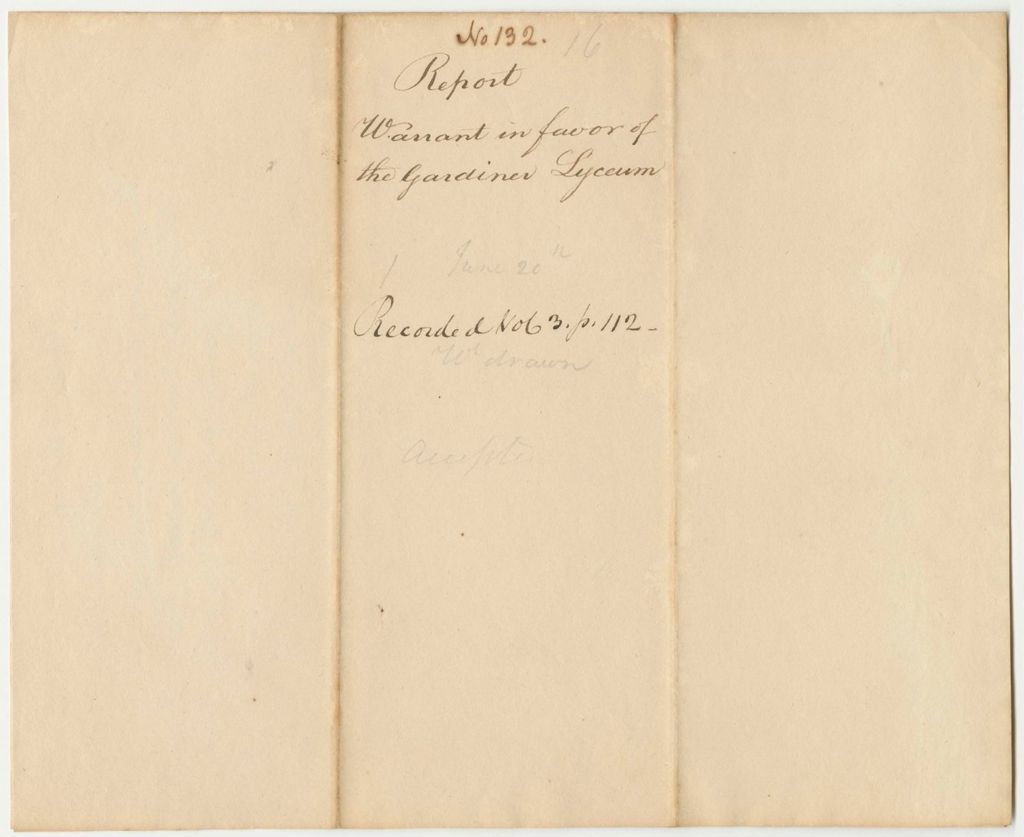 No 132. 16
Report
Warrant in favor of
the Gardiner Lyceum
June 20th
Recorded Vol 3. p. 112 -
Wt drawn
Accepted